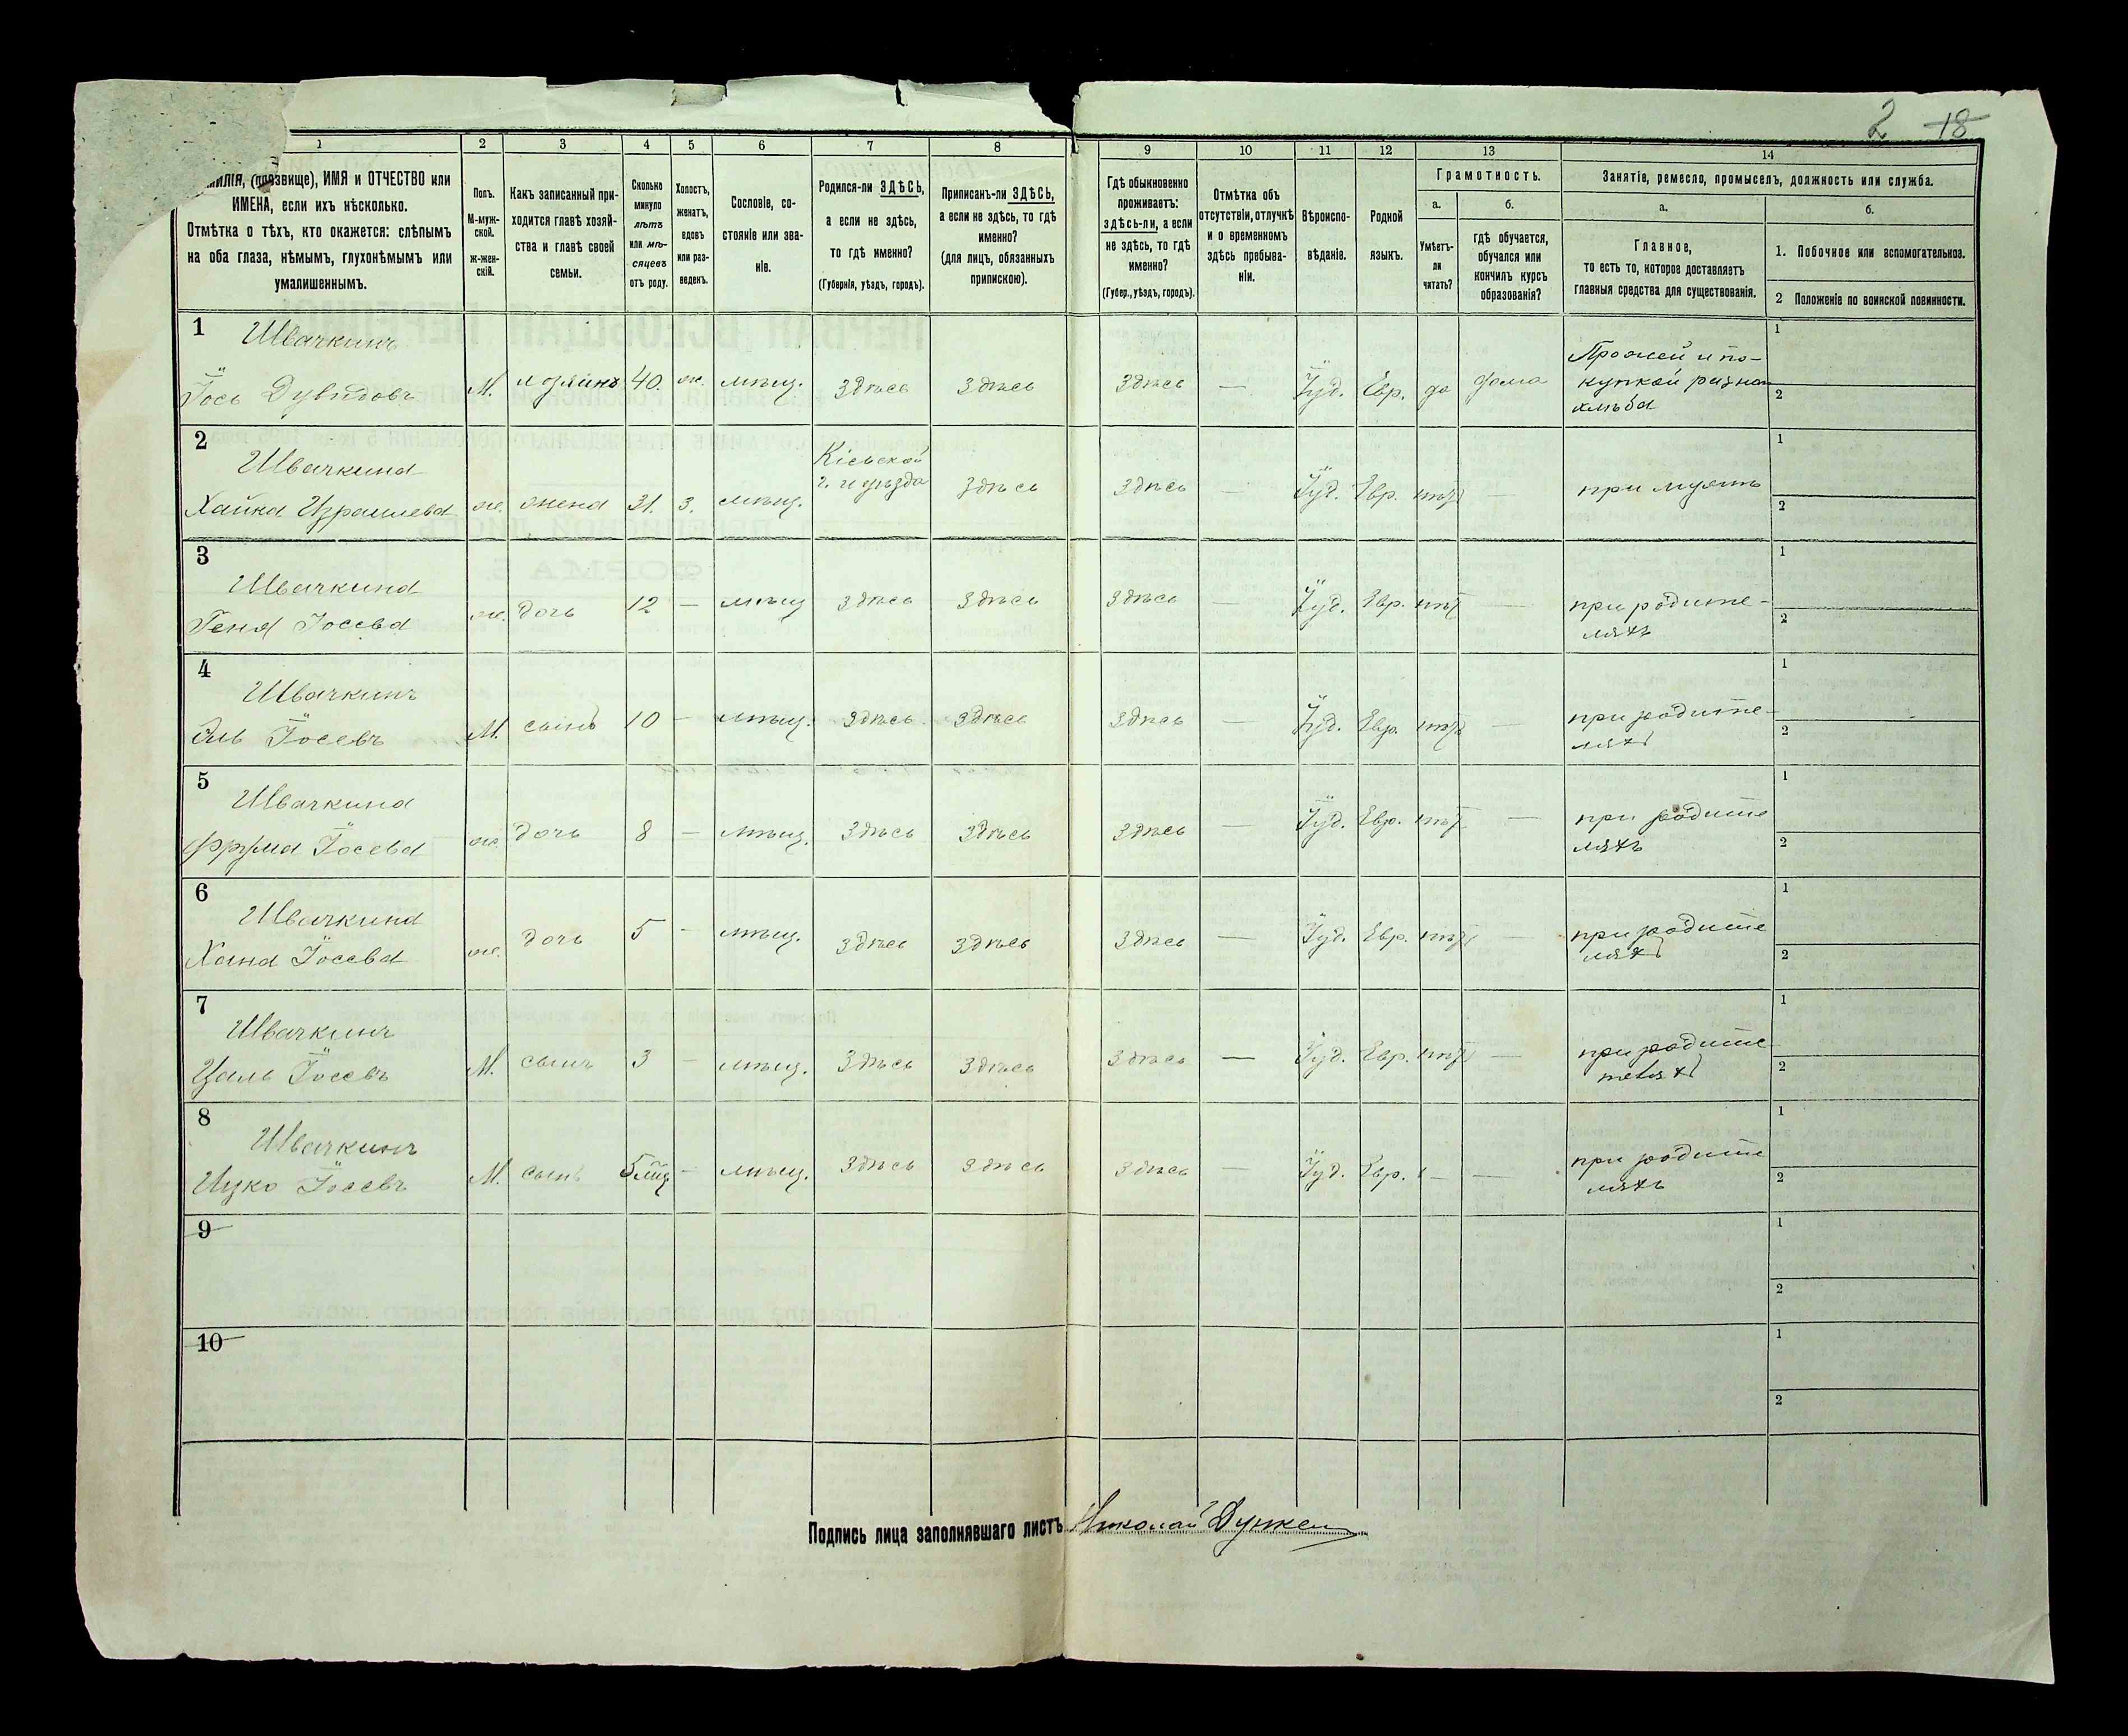 2 18
1 2 3 4 5 6 7 8 9 10 11 12 13 14
МИЛІЯ, (прозвище), ИМЯ и ОТЧЕСТВО или
ИМЕНА, если ихъ нѣсколько.
Отмѣтка о тѣхъ, кто окажется: слѣпымъ
на оба глаза, нѣмымъ, глухонѣмымъ или
умалишеннымъ.
Полъ.
М-муж-
ской.
ж-жен-
скій.
Какъ записанный при-
ходится главѣ хозяй-
ства и главѣ своей
семьи.
Сколько
минуло
лѣтъ
или мѣ-
сяцевъ
отъ роду.
Холостъ,
женатъ,
вдовъ
или раз-
веденъ.
Сословіе, со-
стояніе или зва-
ніе.
Родился-ли ЗДѢСЬ,
а если не здѣсь,
то гдѣ именно?
(Губернія, уѣздъ, городъ).
Приписанъ-ли ЗДѢСЬ,
а если не здѣсь, то гдѣ
именно?
(для лицъ, обязанныхъ
припискою).
Гдѣ обыкновенно
проживаетъ:
здѣсь-ли, а если
не здѣсь, то гдѣ
именно?
(Губер., уѣздъ, городъ).
Отмѣтка объ
отсутствіи, отлучкѣ
и о временномъ
здѣсь пребыва-
ніи.
Вѣроиспо-
вѣданіе.
Родной
языкъ.
Грамотность.
а.
Умѣетъ-
ли
читать?
б.
гдѣ обучается,
обучался или
кончилъ курсъ
образованія?
Занятіе, ремесло, промыселъ, должность или служба.
а.
Главное,
то есть то, которое доставляетъ
главныя средства для существованія.
б.
1. Побочное или вспомогательное.
2 Положеніе по воинской повинности.
1 Швачкинъ
Іось Дувидовъ М. хозяинъ 40. ж. мѣщ. здѣсь здѣсь здѣсь — Іуд. Евр. да дома
и по-
купкой разна
хлѣба
1
2
2 Швачкина
Хайка Израилева ж. жена 31. з. мѣщ.
Кіевской
г. и уѣзда
здѣсь здѣсь — Іуд. Евр. нѣтъ — при мужѣ
1
2
3 Швачкина
Геня Іосева ж. дочь 12 — мѣщ здѣсь здѣсь здѣсь — Іуд. Евр. нѣт —
при родите-
ляхъ
1
2
4 Швачкинъ
Эль Іосевъ М. сынъ 10 — мѣщ. здѣсь здѣсь здѣсь — Іуд. Евр. нѣтъ —
при родите-
ляхъ
1
2
5 Швачкина
Фрума Іосева ж. дочь 8 — мѣщ. здѣсь здѣсь здѣсь — Іуд. Евр. нѣт —
при родите
ляхъ
1
2
6 Швачкина
Хана Іосева ж. дочь 5 — мѣщ. здѣсь здѣсь здѣсь — Іуд. Евр. нѣтъ —
при родите
ляхъ
1
2
7 Швачкинъ
Цаль Іосевъ М. сынъ 3 — мѣщ. здѣсь здѣсь здѣсь — Іуд. Евр. нѣтъ —
при родите
1
2
8 Швачкинъ
Ицко Іосевъ М. сынъ 5 мѣщ. здѣсь здѣсь здѣсь — Іуд. Евр. — —
при родите
ляхъ
1
2
9
1
2
10
1
2
Подпись лица заполнявшаго листъ Николай